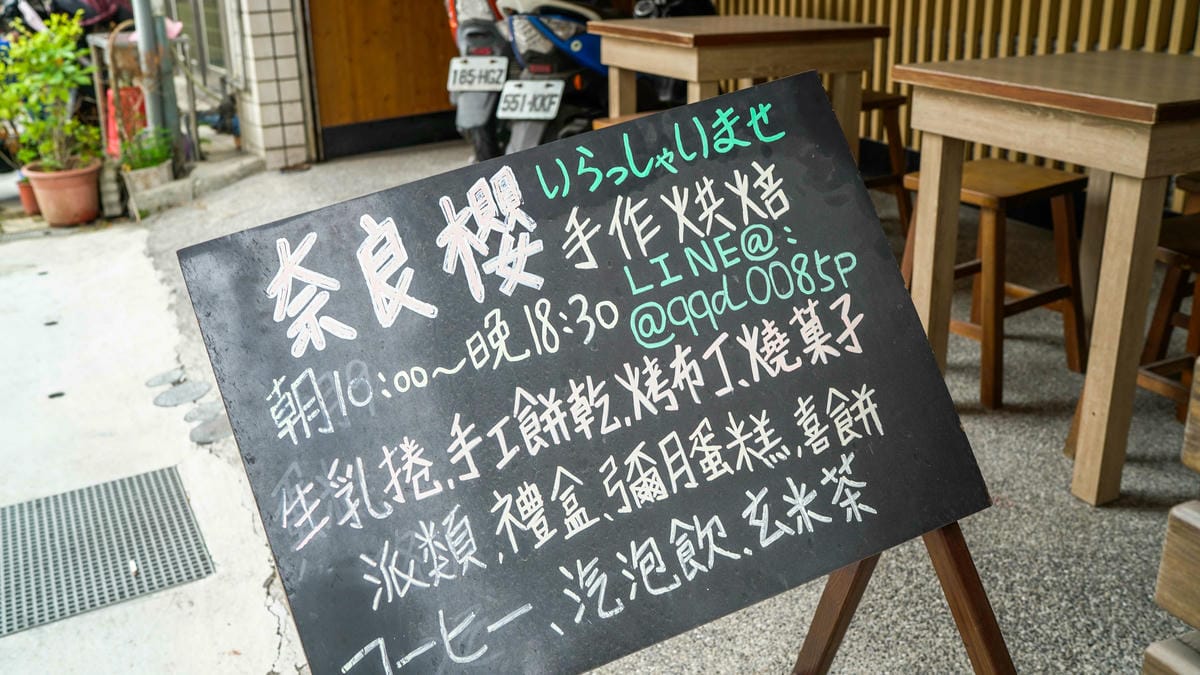 185-HGZ
551-KKF
いらっしゃいませ
奈良櫻 手作烘焙
LINE@:
@qqd0085p
朝10:00~晚18:30
生乳捲、手工餅乾、烤布丁、燒菓子
派類、禮盒、彌月蛋糕、喜餅
コーヒー、汽泡飲、玄米茶